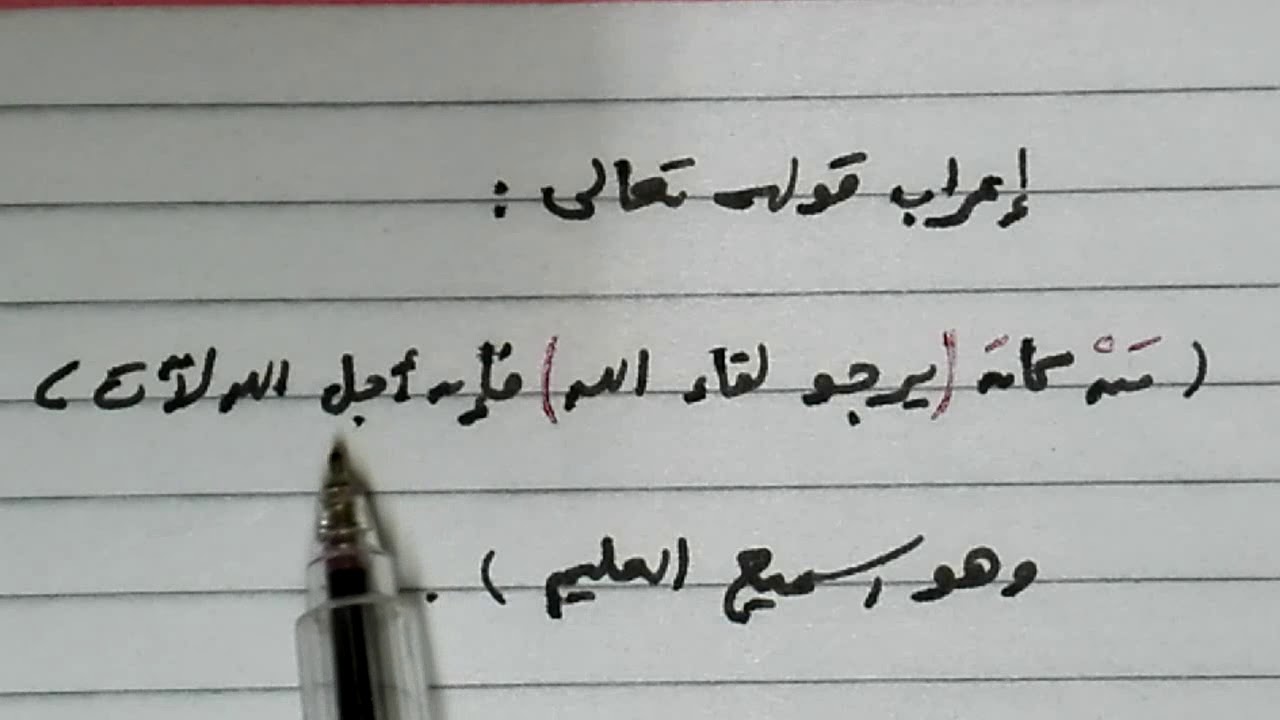 إعراب قوله تعالى :
( مَنْ كانَ (يرجو لقاء الله) فإن أجل الله لآت )
وهو السميع العليم ) .